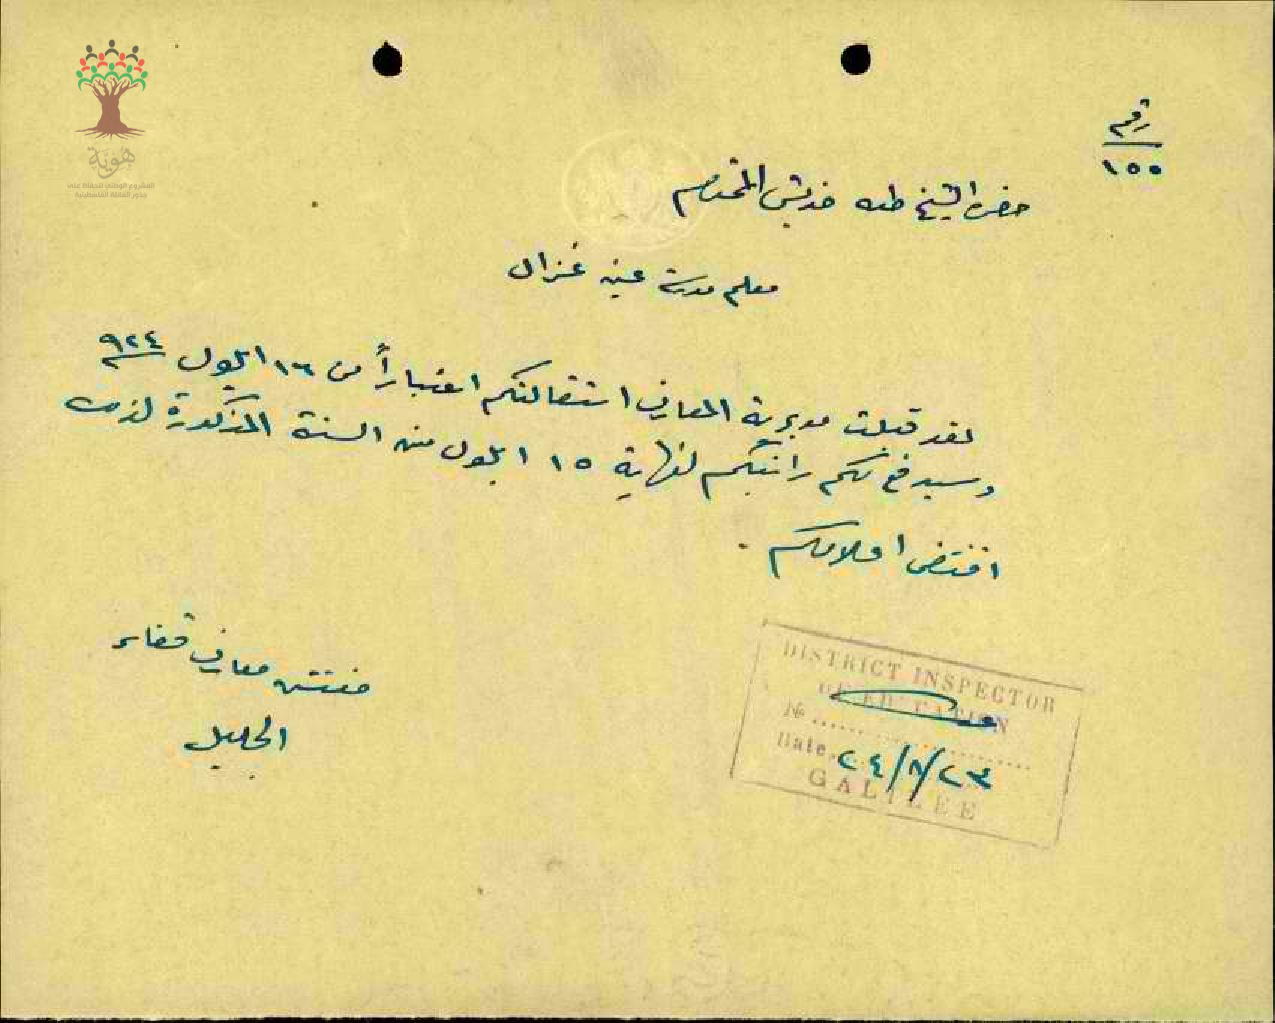 هُويّة
المشروع الوطني للحفاظ على
جذور العائلة الفلسطينية
رقم
١٥٥
حضرة الشيخ طه المحترم
معلم مدرسة عين غزال
لقد قبلت مديرية المعارف استقالتكم اعتباراً من ١٦ ايلول ٩٢٤
وسيدفع لكم راتبكم لنهاية ١٥ ايلول من السنة المذكورة لذلك
اقتضى اعلامكم .
مفتش معارف قضاء
الجليل
DISTRICT INSPECTOR
OF EDUCATION
№ ..................
Date. ٢٤/٨/٢٣
GALILEE